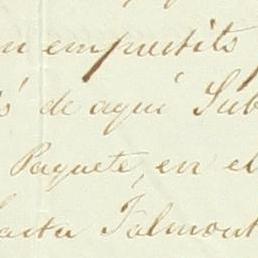 n empretits
s de aquí Sub
Paquete, en el
asta Falmout